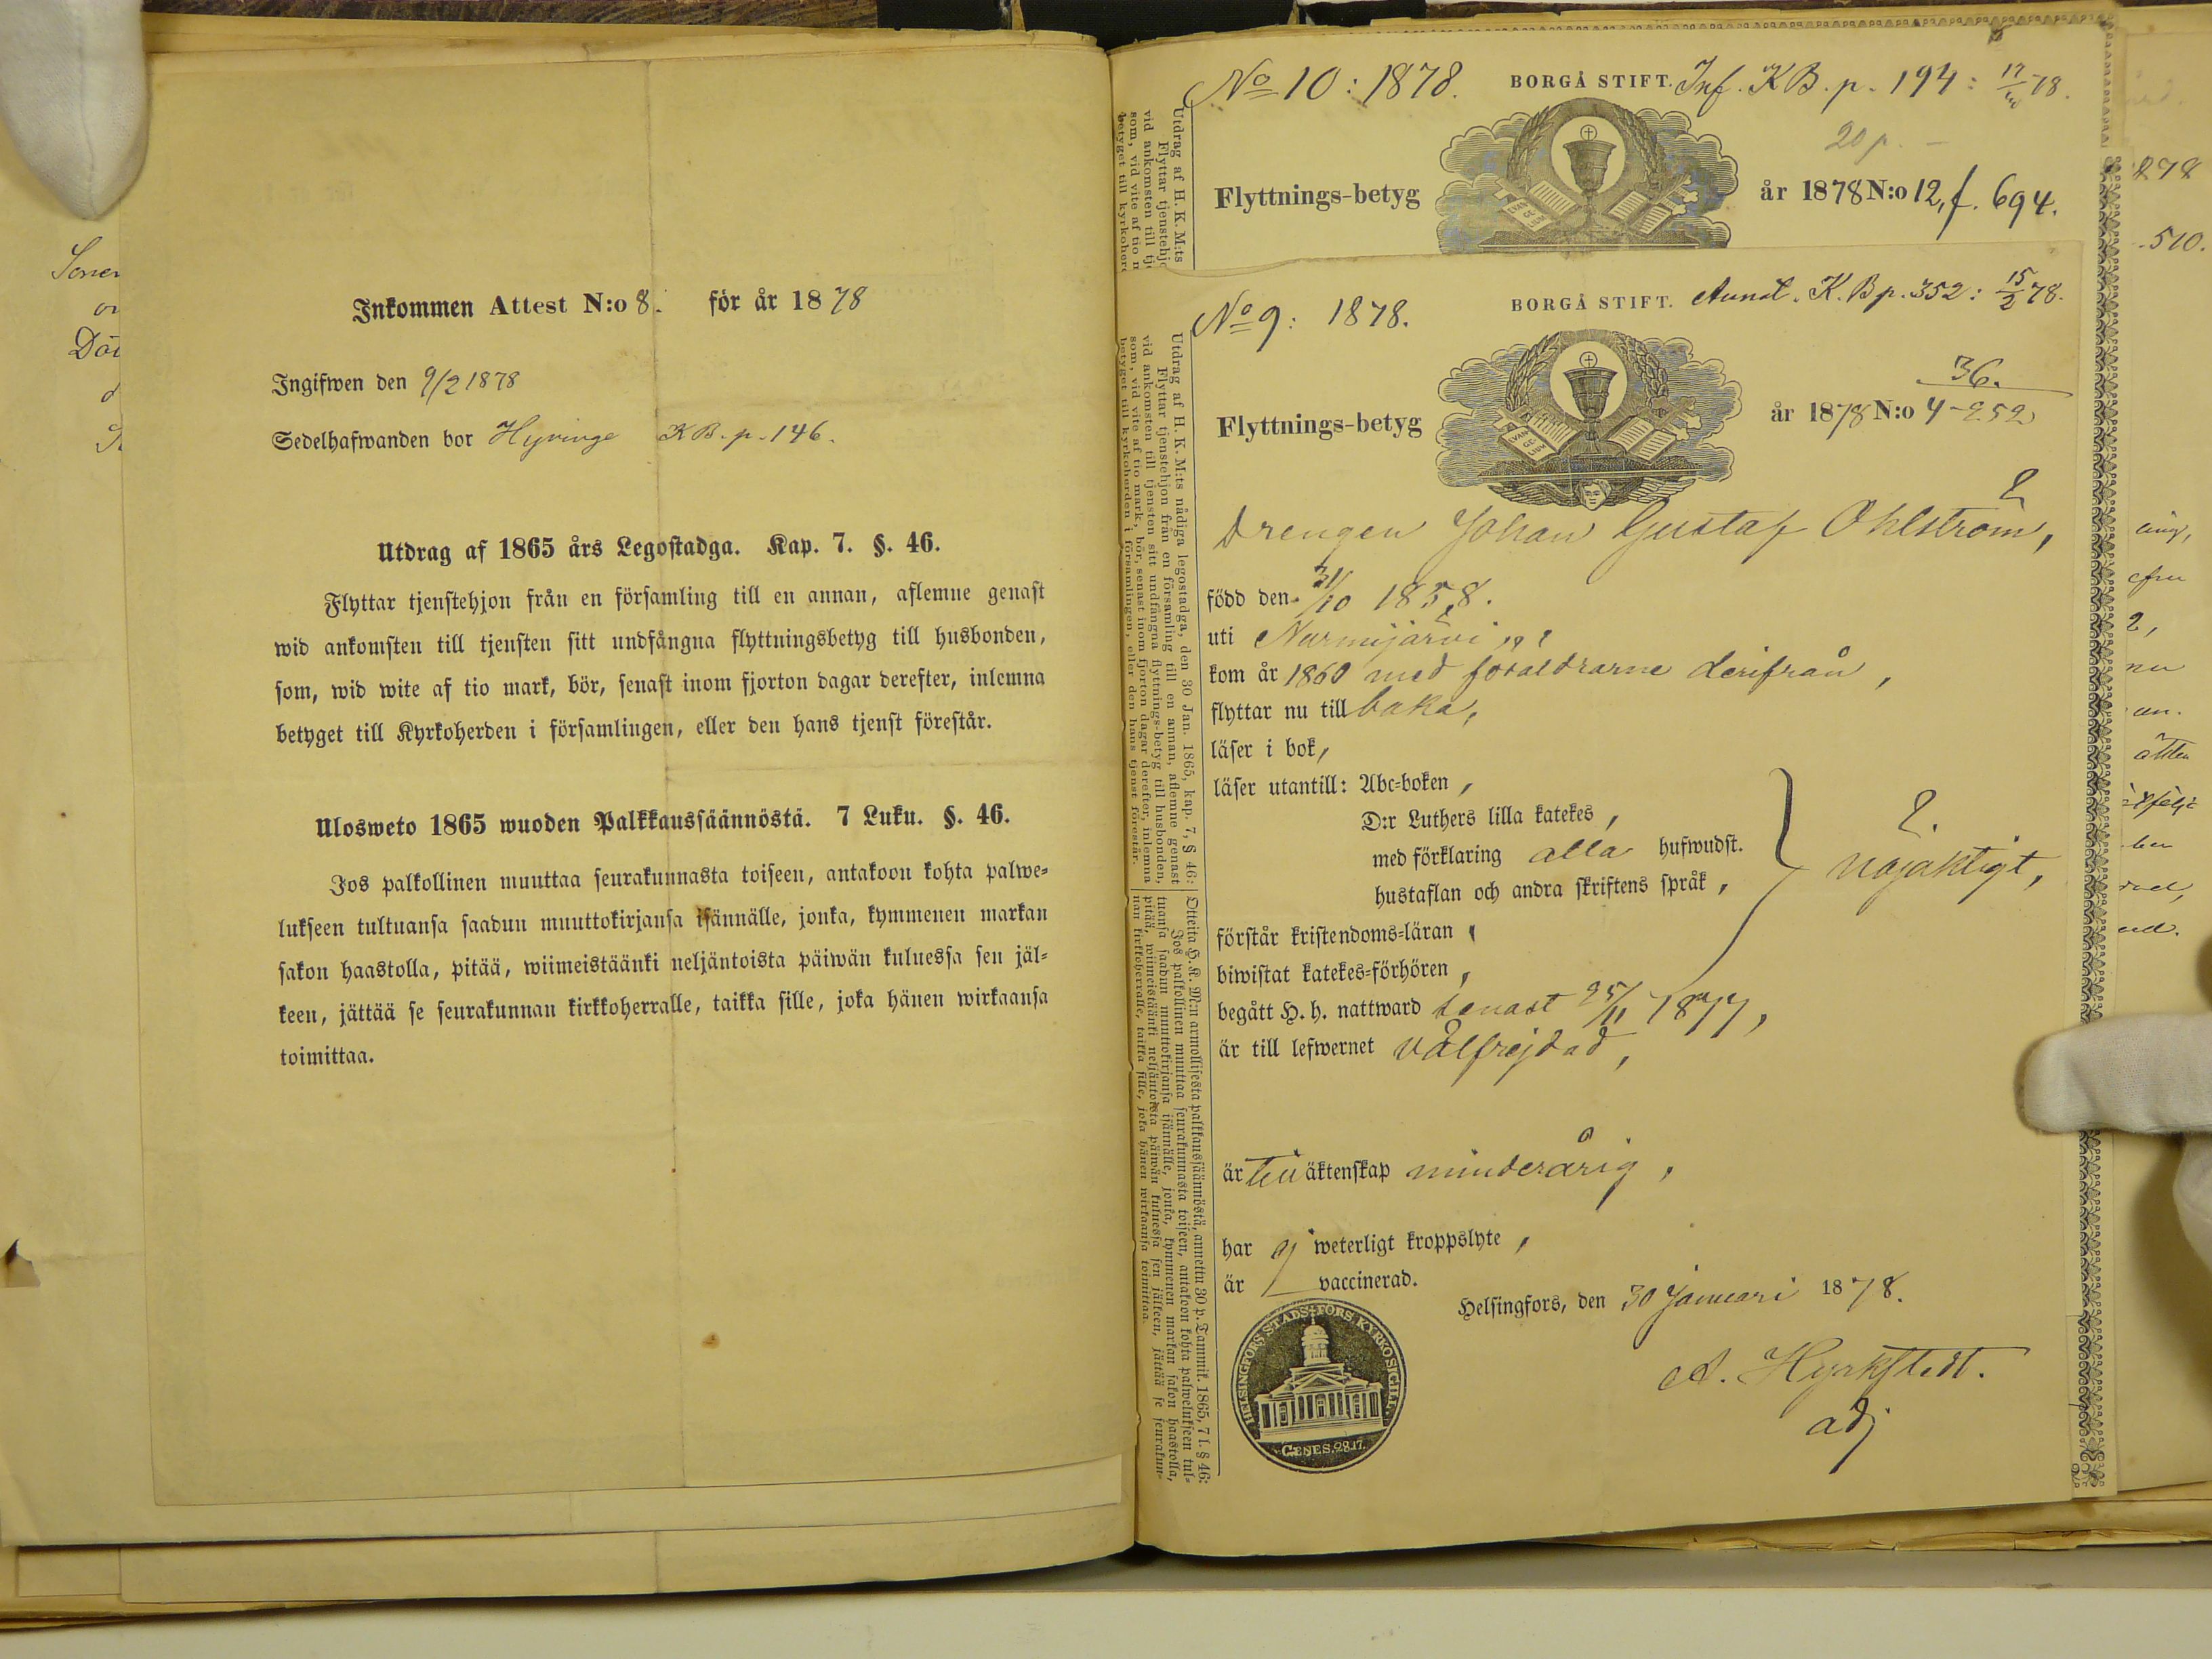 Inkommen Attest N:o 8. för år 1878
Ingifwen den 9/2 1878
Sedelhafwanden bor Hyvinge KB. p. 146.
Utdrag af 1865 års Legostadga. Kap. 7. §. 46.
Flyttar tjenstehjon från en församling till en annan, aflemne genast
wid ankomsten till tjensten sitt undfångna flyttningsbetyg till husbonden,
som, wid wite af tio mark, bör, senast inom fjorton dagar derefter, inlemna
betyget till Kyrkoherden i församlingen, eller den hans tjenst förestår.
Ulosweto 1865 wuoden Palkkaussäännöstä. 7 Luku. §. 46.
Jos palkollinen muuttaa seurakunnasta toiseen, antakoon kohta palwe-
lukseen tultuansa saadun muuttokirjansa isännälle, jonka, kymmenen markan
sakon haastolla, pitää, wiimeistäänki neljäntoista päiwän kuluessa sen jäl-
keen, jättää se seurakunnan kirkkoherralle, taikka sille, joka hänen wirkaansa
toimittaa.
No 10: 1878. BORGÅ STIFT. Inf. KB. p. 194: 78.
20 p.
Flyttnings-betyg år 1878 N:o 12, f. 694.
EVAN GE- LIUM
No 9: 1878. BORGÅ STIFT. Annot. K. B p. 352: 15/2 78.
36.
Flyttnings-betyg år 1878 N:o 4-252
EVAN GE- LIUM
Drengen Johan Gustaf Ohlström,
född den 31/10 1858.
uti Nurmijärvi
kom år 1860 med föräldrarne derifrån,
flyttar nu till baka,
läser i bok,
läser utantill: Abc-boken,
D:r Luthers lilla katekes,
med förklaring alla hufwudst.
hustaflan och andra skriftens språk,
nöjaktigt,
förstår kristendoms-läran
biwistat katekes-förhören,
begått H. h. nattward senast 25/11 1877,
är till lefwernet välfrejdad,
är till äktenskap minderårig,
har ej weterligt kroppslyte,
är vaccinerad.
Helsingfors, den 30 Januari 1878.
A. Hyrkstedt.
adj
HELSINGFORS STADS FÖRS. KYRKO SIGILL.
GENES. 28.17.
Utdrag af H. K. M:ts nådiga legostadga, den 30 Jan. 1865, kap. 7, § 46:
Flyttar tjenstehjon från en församling till en annan, aflemne genast
vid ankomsten till tjensten sitt undfångna flyttnings-betyg till husbonden,
som, vid vite af tio mark, bör, senast inom fjorton dagar derefter, inlemna
betyget till kyrkoherden i församlingen, eller den hans tjenst förestår.
Otteita H. K. M:n armollisesta palkkaussäännöstä, annettu 30 p. Tammik. 1865, 7 l. § 46:
Jos palkollinen muuttaa seurakunnasta toiseen, antakoon kohta palwelukseen tul-
tuansa saadun muuttokirjansa isännälle, jonka, kymmenen markan sakon haastolla,
pitää, wiimeistäänki neljäntoista päiwän kuluessa sen jälkeen, jättää se seurakun-
nan kirkkoherralle, taikka sille, joka hänen wirkaansa toimittaa.
Utdrag af H. K. M:ts
Flyttar tjenstehjo
vid ankomsten till tj
som, vid vite af tio m
betyget till kyrkoherd
878
510.